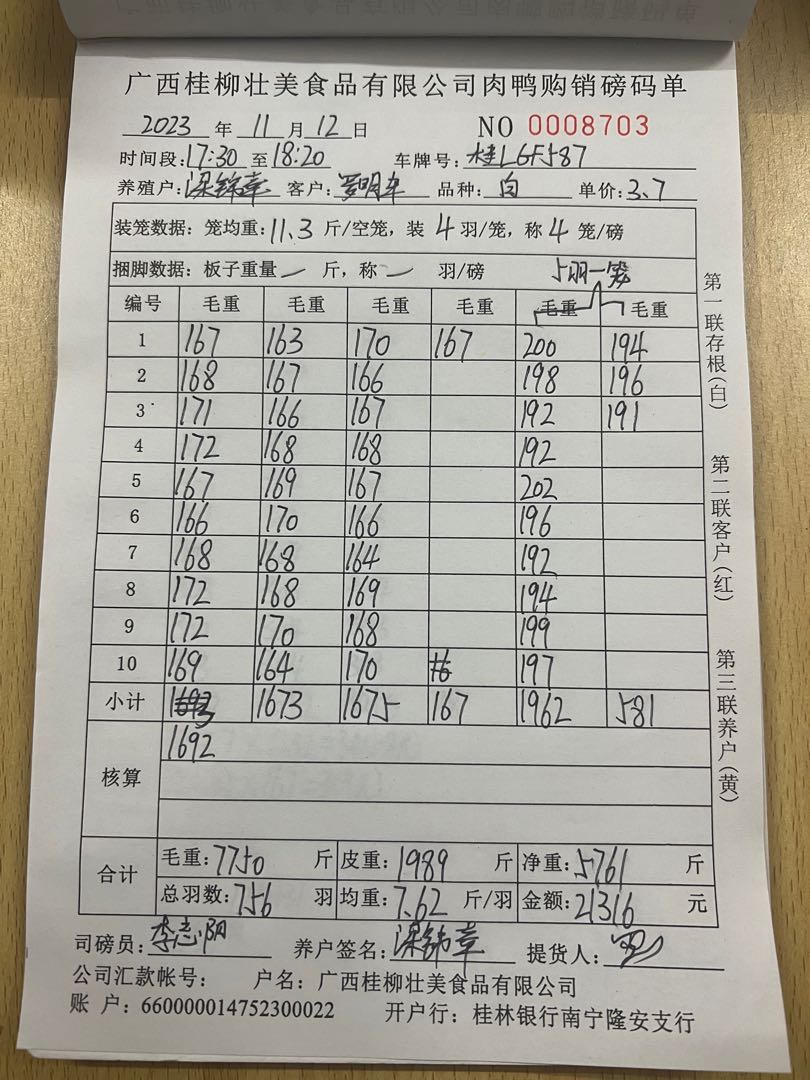 广西桂柳壮美食品有限公司肉鸭购销磅码单
2023 年 11 月 12 日 NO 0008703
时间段: 17:30 至 18:20 车牌号: 桂LGF587
养殖户: 梁锦章 客户: 罗明车 品种: 白 单价: 3.7
装笼数据: 笼均重: 11.3 斤/空笼, 装 4 羽/笼, 称 4 笼/磅
捆脚数据: 板子重量 一 斤, 称 一 羽/磅 5羽一笼
编号 毛重 毛重 毛重 毛重 毛重 毛重
1 167 163 170 167 200 194
2 168 167 166 198 196
3 171 166 167 192 191
4 172 168 168 192
5 167 169 167 202
6 166 170 166 196
7 168 168 164 192
8 172 168 169 194
9 172 170 168 199
10 169 164 170 197
小计 1673 1675 167 1962 581
核算 1692
合计 毛重: 7750 斤 皮重: 1989 斤 净重: 5761 斤
总羽数: 756 羽 均重: 7.62 斤/羽 金额: 21316 元
司磅员: 李志阴 养户签名: 梁锦章 提货人:
公司汇款帐号: 户名: 广西桂柳壮美食品有限公司
账 户: 660000014752300022 开户行: 桂林银行南宁隆安支行
第一联存根(白)
第二联客户(红)
第三联养户(黄)